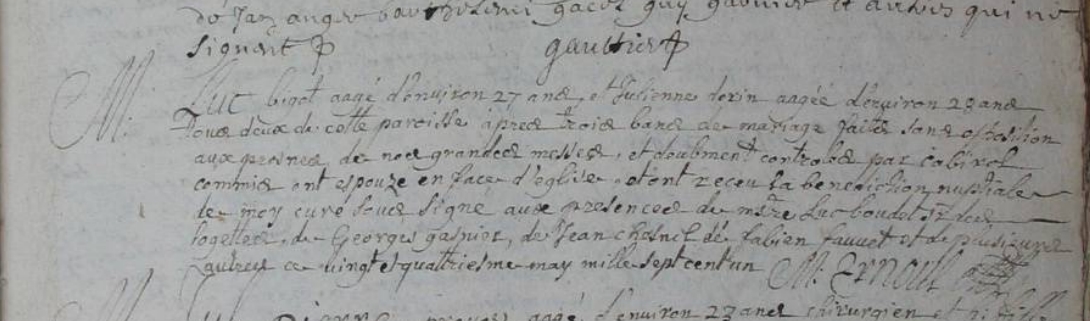 de Jan auger barthelemi gacel guy garnier et autres qui ne
signent
gaultier
M.
Luc bigot aagé d'environ 27 ans, et Julienne dorin aagée d'environ 23 ans
Tous deux de cette paroisse après trois bans de mariage faits sans oposition
aux prosnes de nos grandes messes, et doubment controlés par
commis ont espouzé en face d'eglise et ont receu la benediction nuptiale
de moy curé sous signé aux presences de Luc boudet
de Georges gasnier, de Jean chesnel de fabien fauvet et de plusieurs
autres ce vingt et quattriesme may mille sept cent un M. Ernoul
aagé d'environ 27 ans chirurgien et